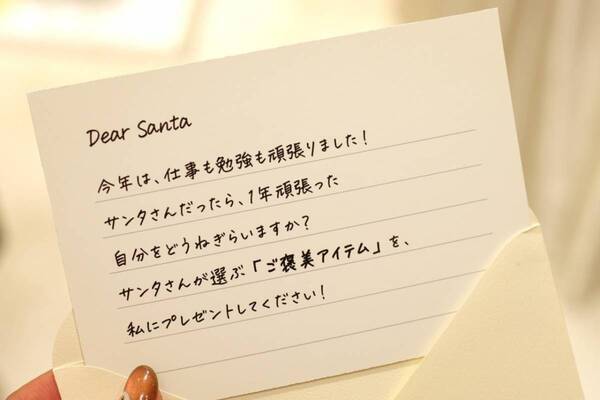 Dear Santa
今年は、仕事も勉強も頑張りました！
サンタさんだったら、1年頑張った
自分をどうねぎらいますか？
サンタさんが選ぶ「ご褒美アイテム」を、
私にプレゼントしてください！